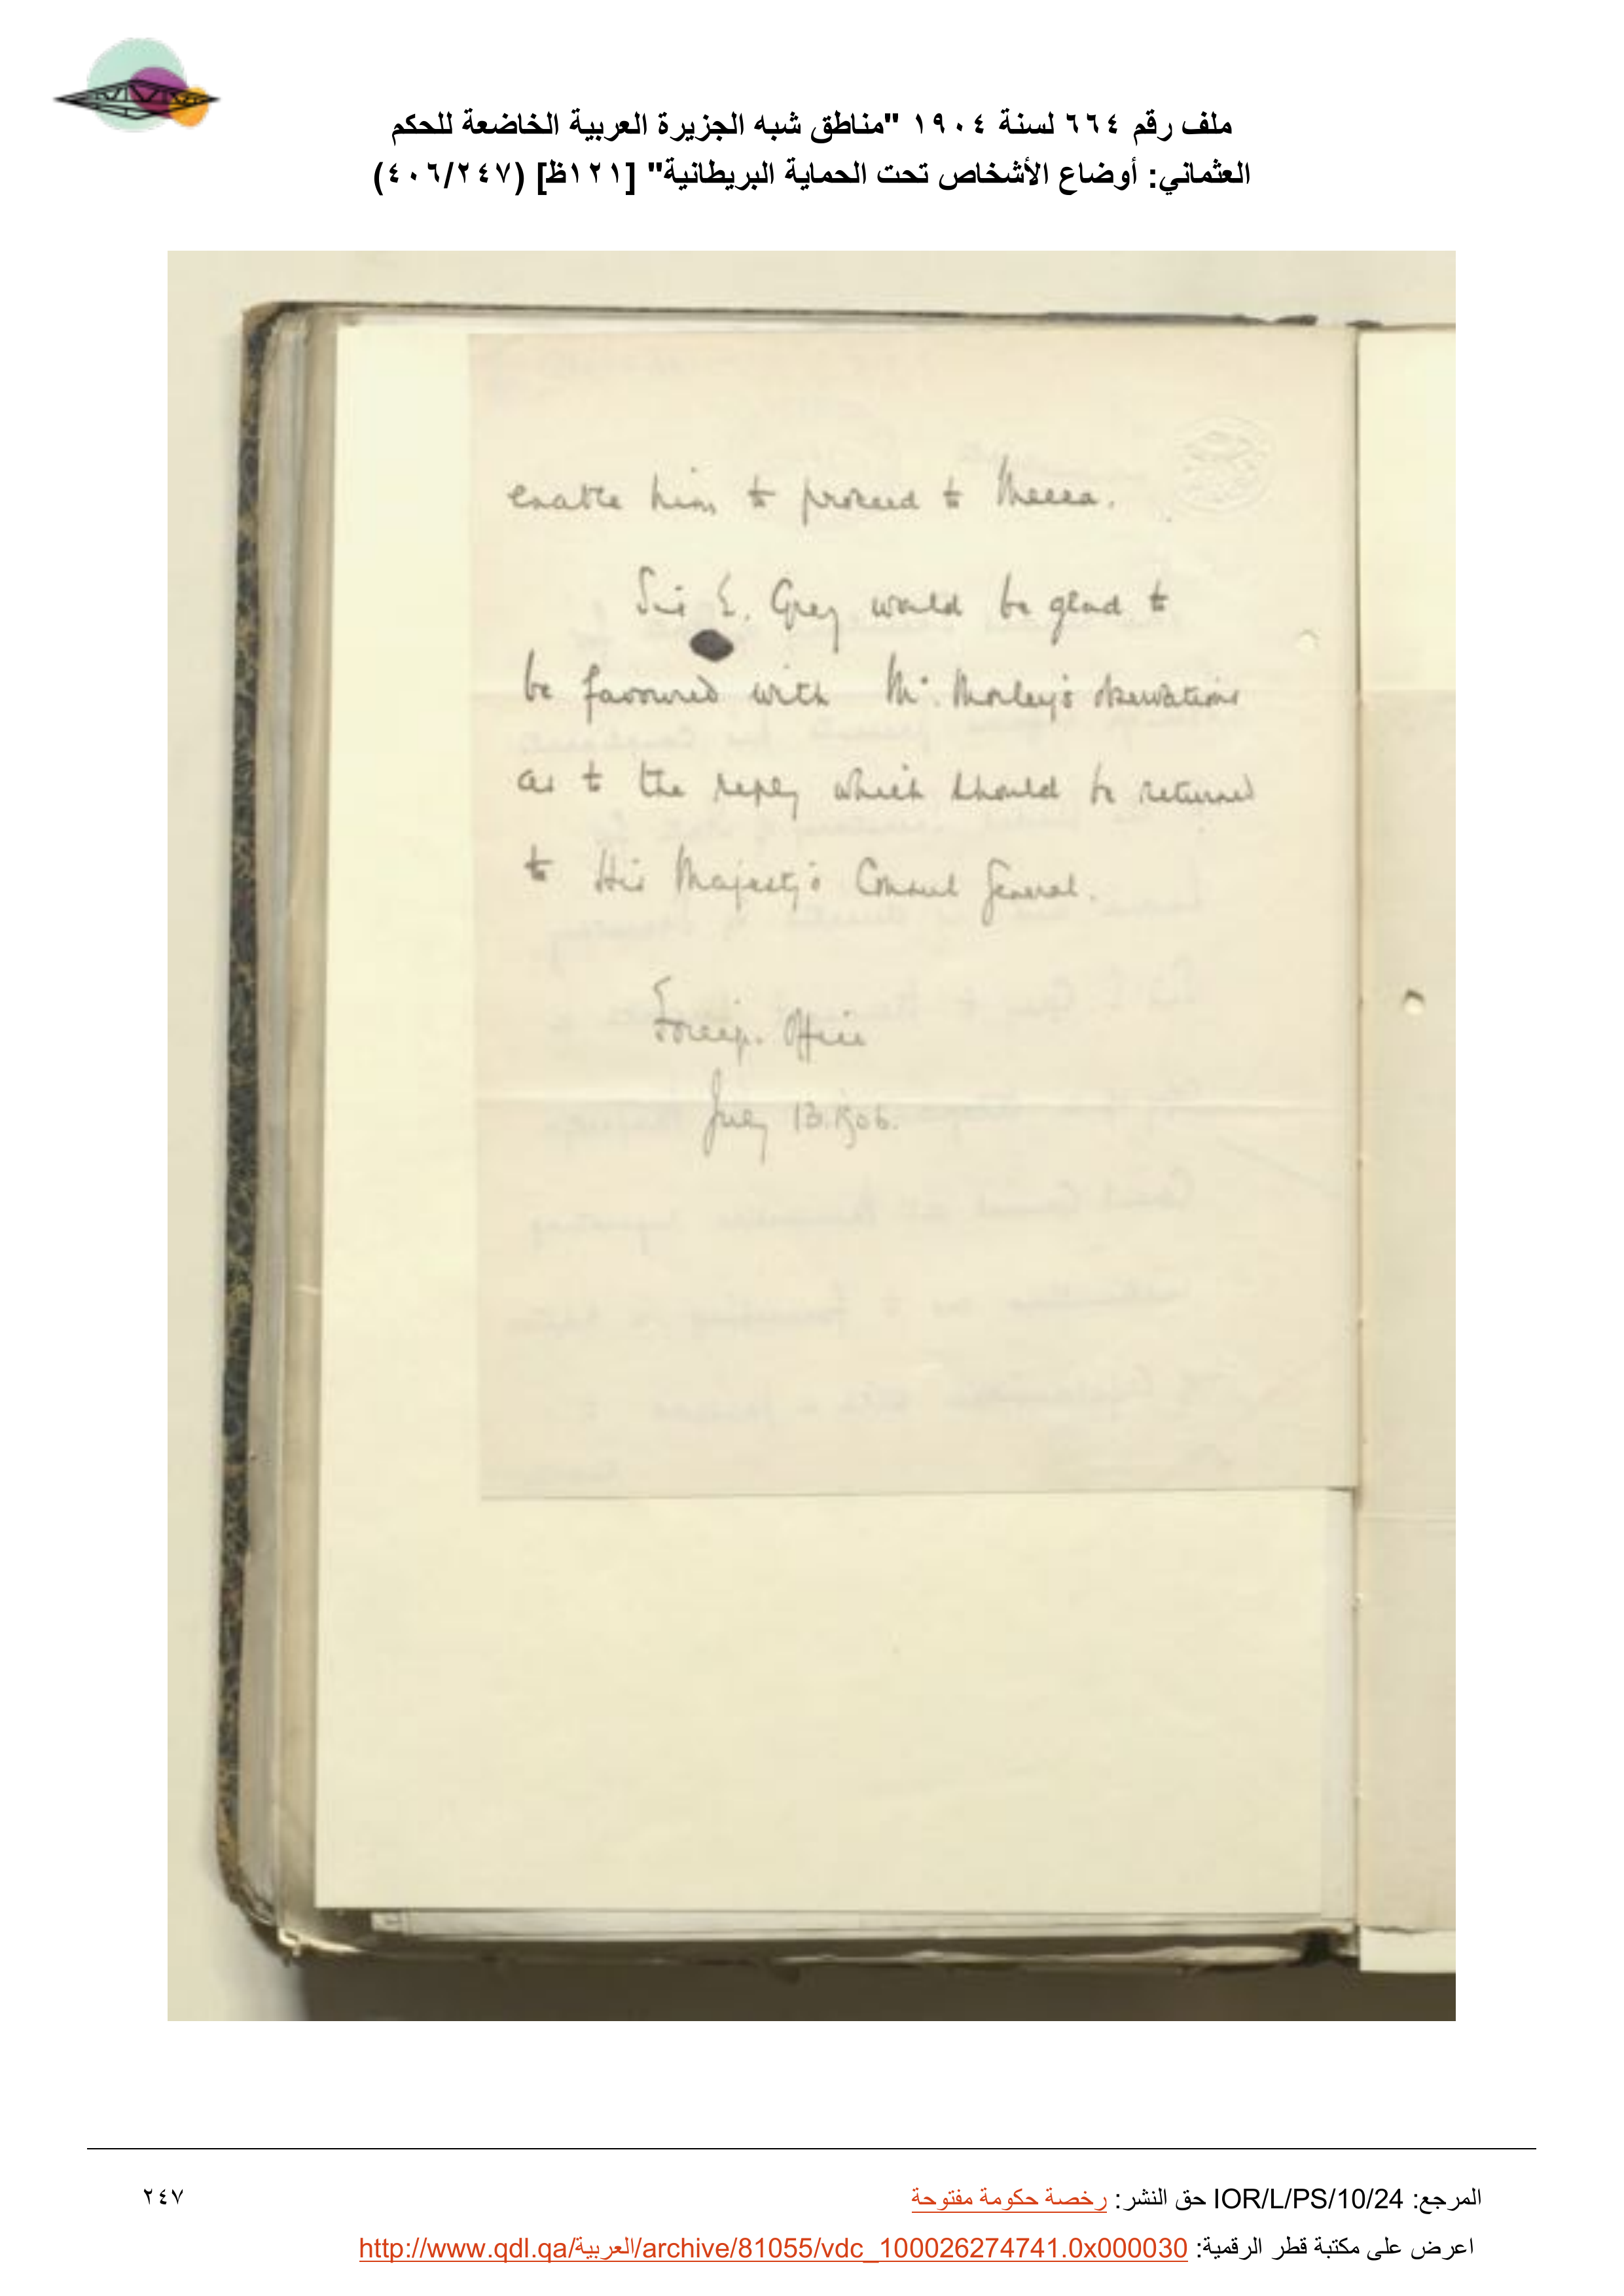 ملف رقم ٦٦٤ لسنة ١٩٠٤ "مناطق شبه الجزيرة العربية الخاضعة للحكم
العثماني: أوضاع الأشخاص تحت الحماية البريطانية" [١٢١ظ] (٤٠٦/٢٤٧)
enable him to proceed to Mecca.
Sir E. Grey would be glad to
be favoured with Mr. Morley's observations
as to the reply which should be returned
to His Majesty's Consul General.
Foreign Office
July 13. 1906.
المرجع: IOR/L/PS/10/24 حق النشر: رخصة حكومة مفتوحة
٢٤٧
اعرض على مكتبة قطر الرقمية: http://www.qdl.qa/العربية/archive/81055/vdc_100026274741.0x000030